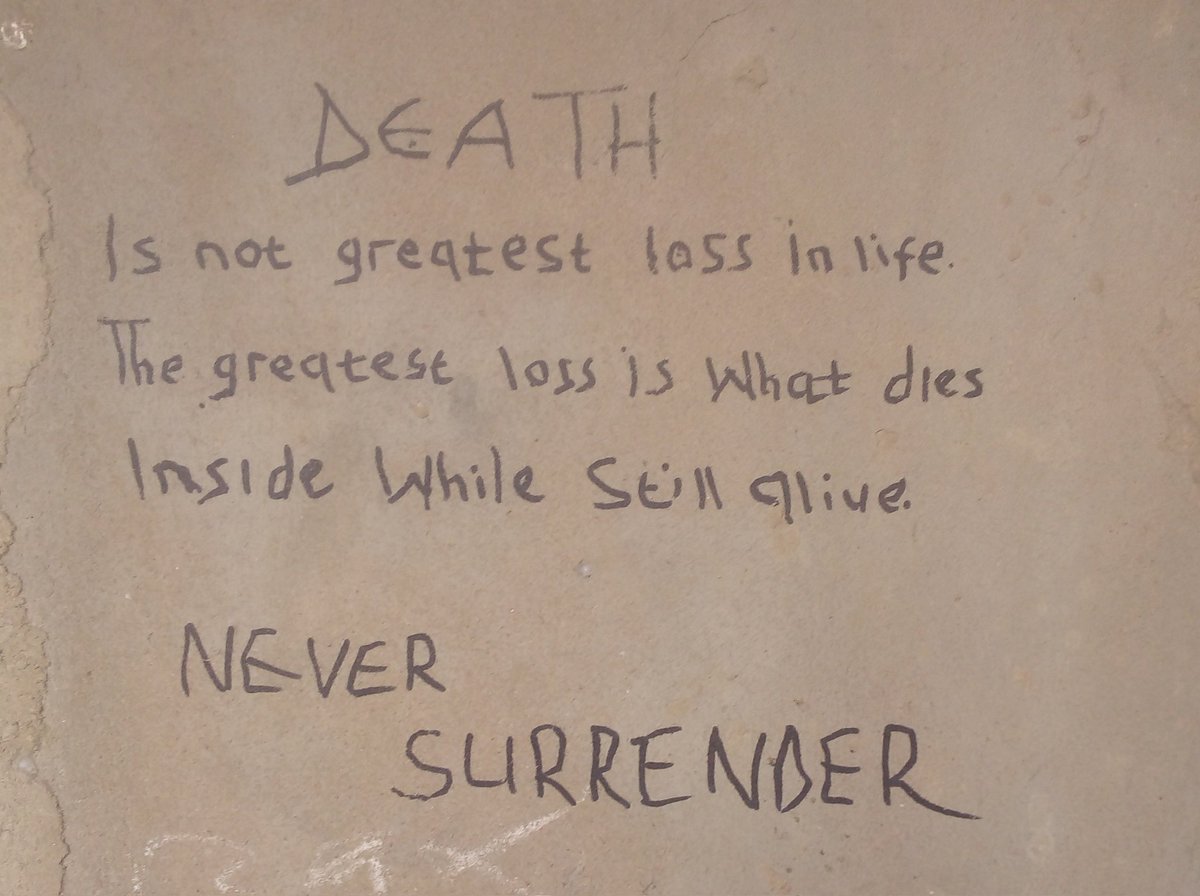 DEATH
Is not greatest loss in life.
The greatest loss is What dies
Inside While Still alive.
NEVER
SURRENDER